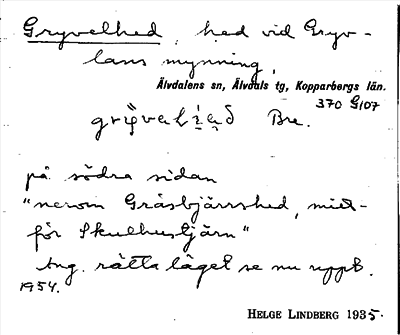 Gryvelhed, hed vid Gryv-
lans mynning,
Älvdalens sn, Älvdals tg, Kopparbergs län.
370 G107
Bre.
på södra sidan
"nerom Gråsbjärrshed, mitt-
för Skulhustjärn"
Ang. rätta läget se nu uppt.
1954.
HELGE LINDBERG 1935.